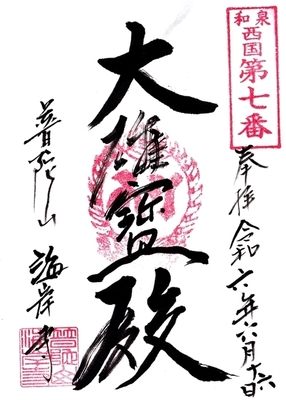 和泉
西国
第七番
奉拝 令和六年六月十六日
大雄寳殿
普陀山 海岸寺